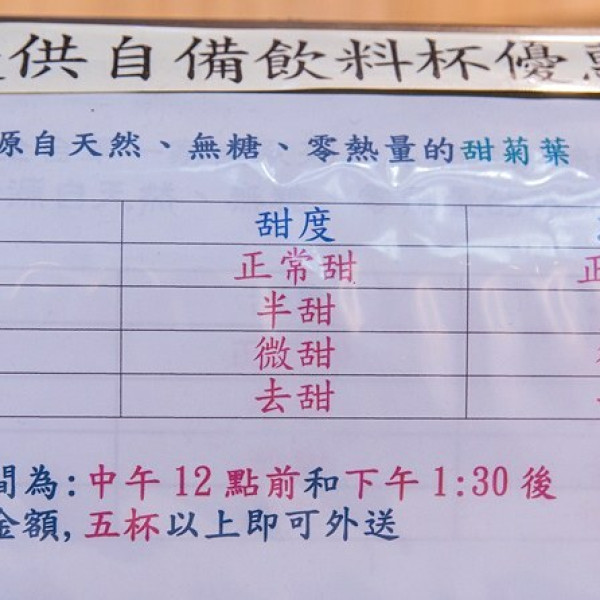 供自備飲料杯優
原自天然、無糖、零熱量的甜菊葉
甜度
正常甜 正
半甜
微甜
去甜
間為:中午12點前和下午1:30後
金額,五杯以上即可外送